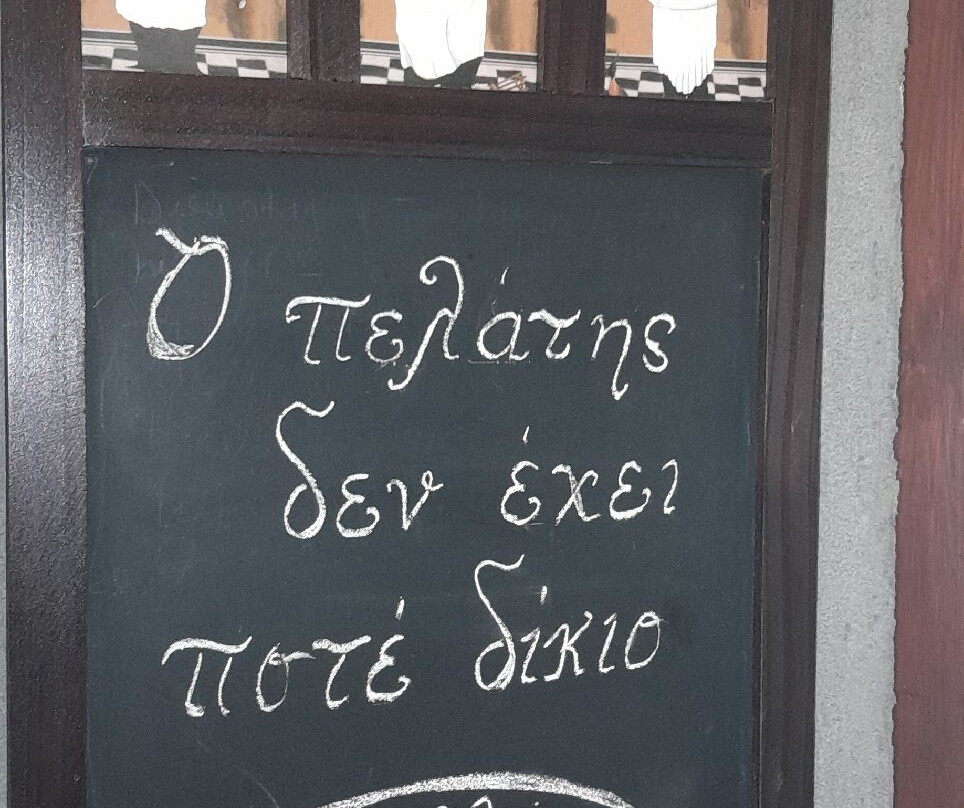 Ο πελάτης
δεν έχει
ποτέ δίκιο